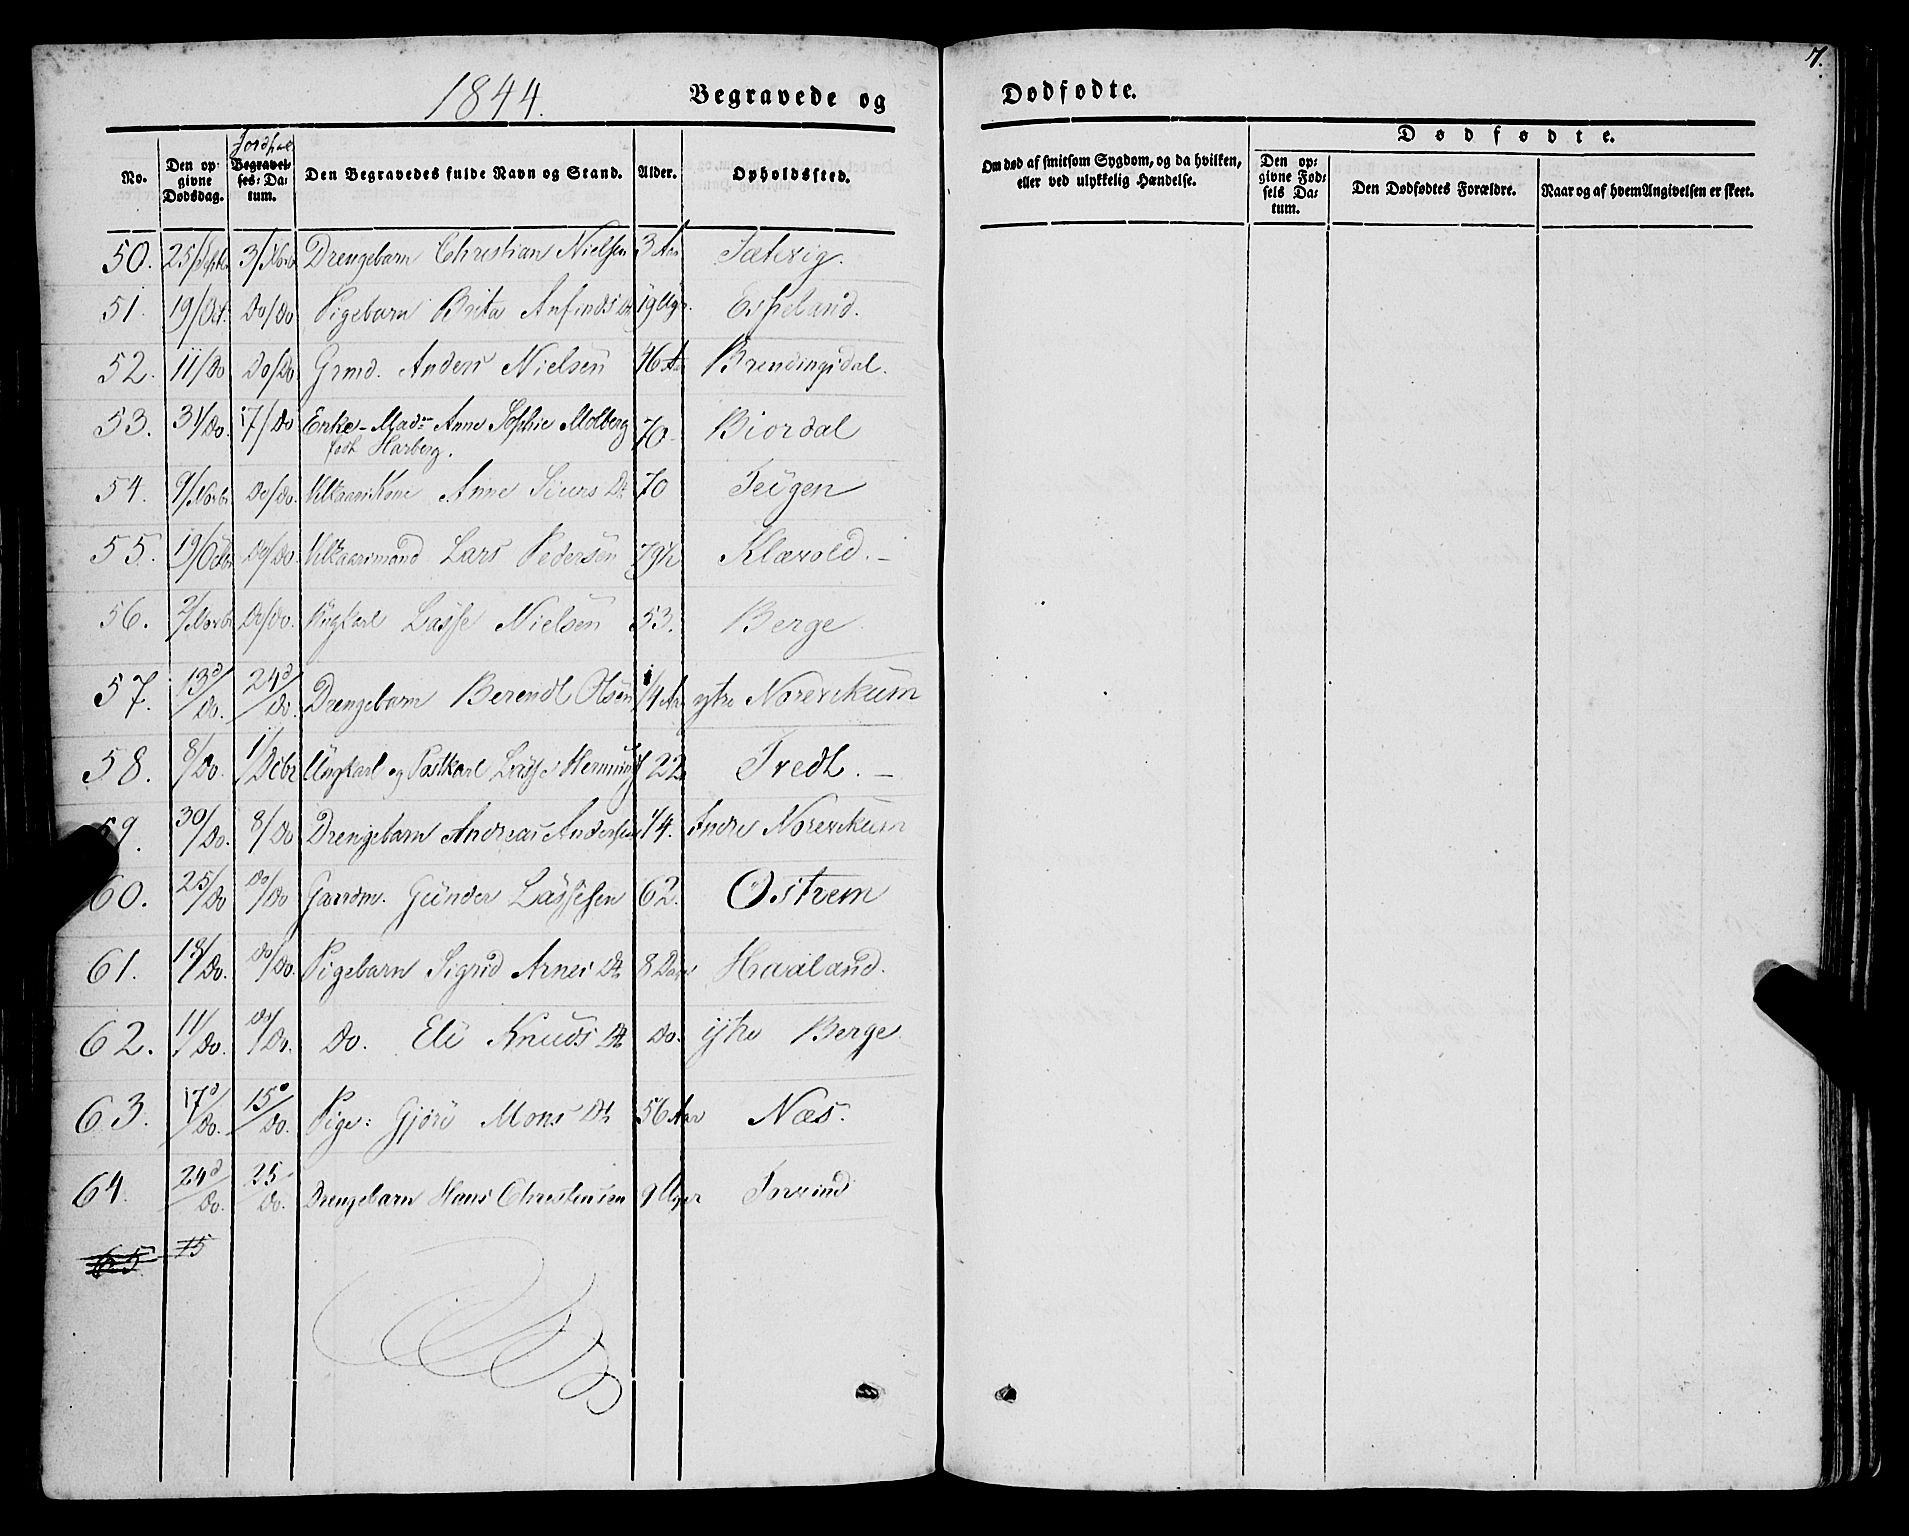 1844.
Begravede og
Dødfødte.
7.
No.
Den opgivne Dødsdag.
Jordfæ
Begravelses-Datum.
Den Begravedes fulde Navn og Stand.
Alder.
Opholdssted.
Om død af smitsom Sygdom, og da hvilken, eller ved ulykkelig Hændelse.
Dødfødte.
Den opgivne Fødsels Datum.
Den Dødfødtes Forældre.
Naar og af hvem Angivelsen er skeet.
50. 25/Septbr 3/Novb Drengebarn Christian Nielsen 3 Aar Sætvig.
51. 19/Oct. Do/Do Pigebarn Brita Anfinds Dt 19 Uger Espeland.
52. 11/Do Do/Do. Grmd. Anders Nielsen 46 Aa Brendingsdal.
53. 31/Do. 17/Do Enke-Mad. Anne Sophie Molberg 70 Biordal
født Harberg.
54. 9/Novbr Do/Do. Vilkaarskone Anne Siurs Dt 70 Teigen
55. 19/Octbr Do/Do. Vilkaarsmand Lars Pedersen 79½ Klævold. -
56. 2/Novbr Do/Do. Ungkarl Lasse Nielsen 53. Berge
57. 13d/Do. 24d/Do. Drengebarn Berendt Olsen 1/4 Aar ytre Norevikum
58. 8/Do. 1/Dcbr Ungkarl og Postkarl Lasse Hermund 22 Tredt. -
59. 30/Do. 8/Do Drengebarn Andreas Andersen 1/4. Indre Norevikum
60. 25/Do Do/Do Gaardm. Gunder Lassesen 62. Ostrem
61. 18/Do. Do/Do. Pigebarn Sigrid Arnes Dt 8 Dage Haaland.
62. 11/Do. Do/Do. Do. Eli Knuds Dt Do. ytre Berge
63. 17d/Do. 15/Do. Pige: Gjøri Mons Dt 56 Aar Næs.
64. 24d/Do. 25/Do. Drengebarn Hans Christensen 9 Uger Torvund
65 15